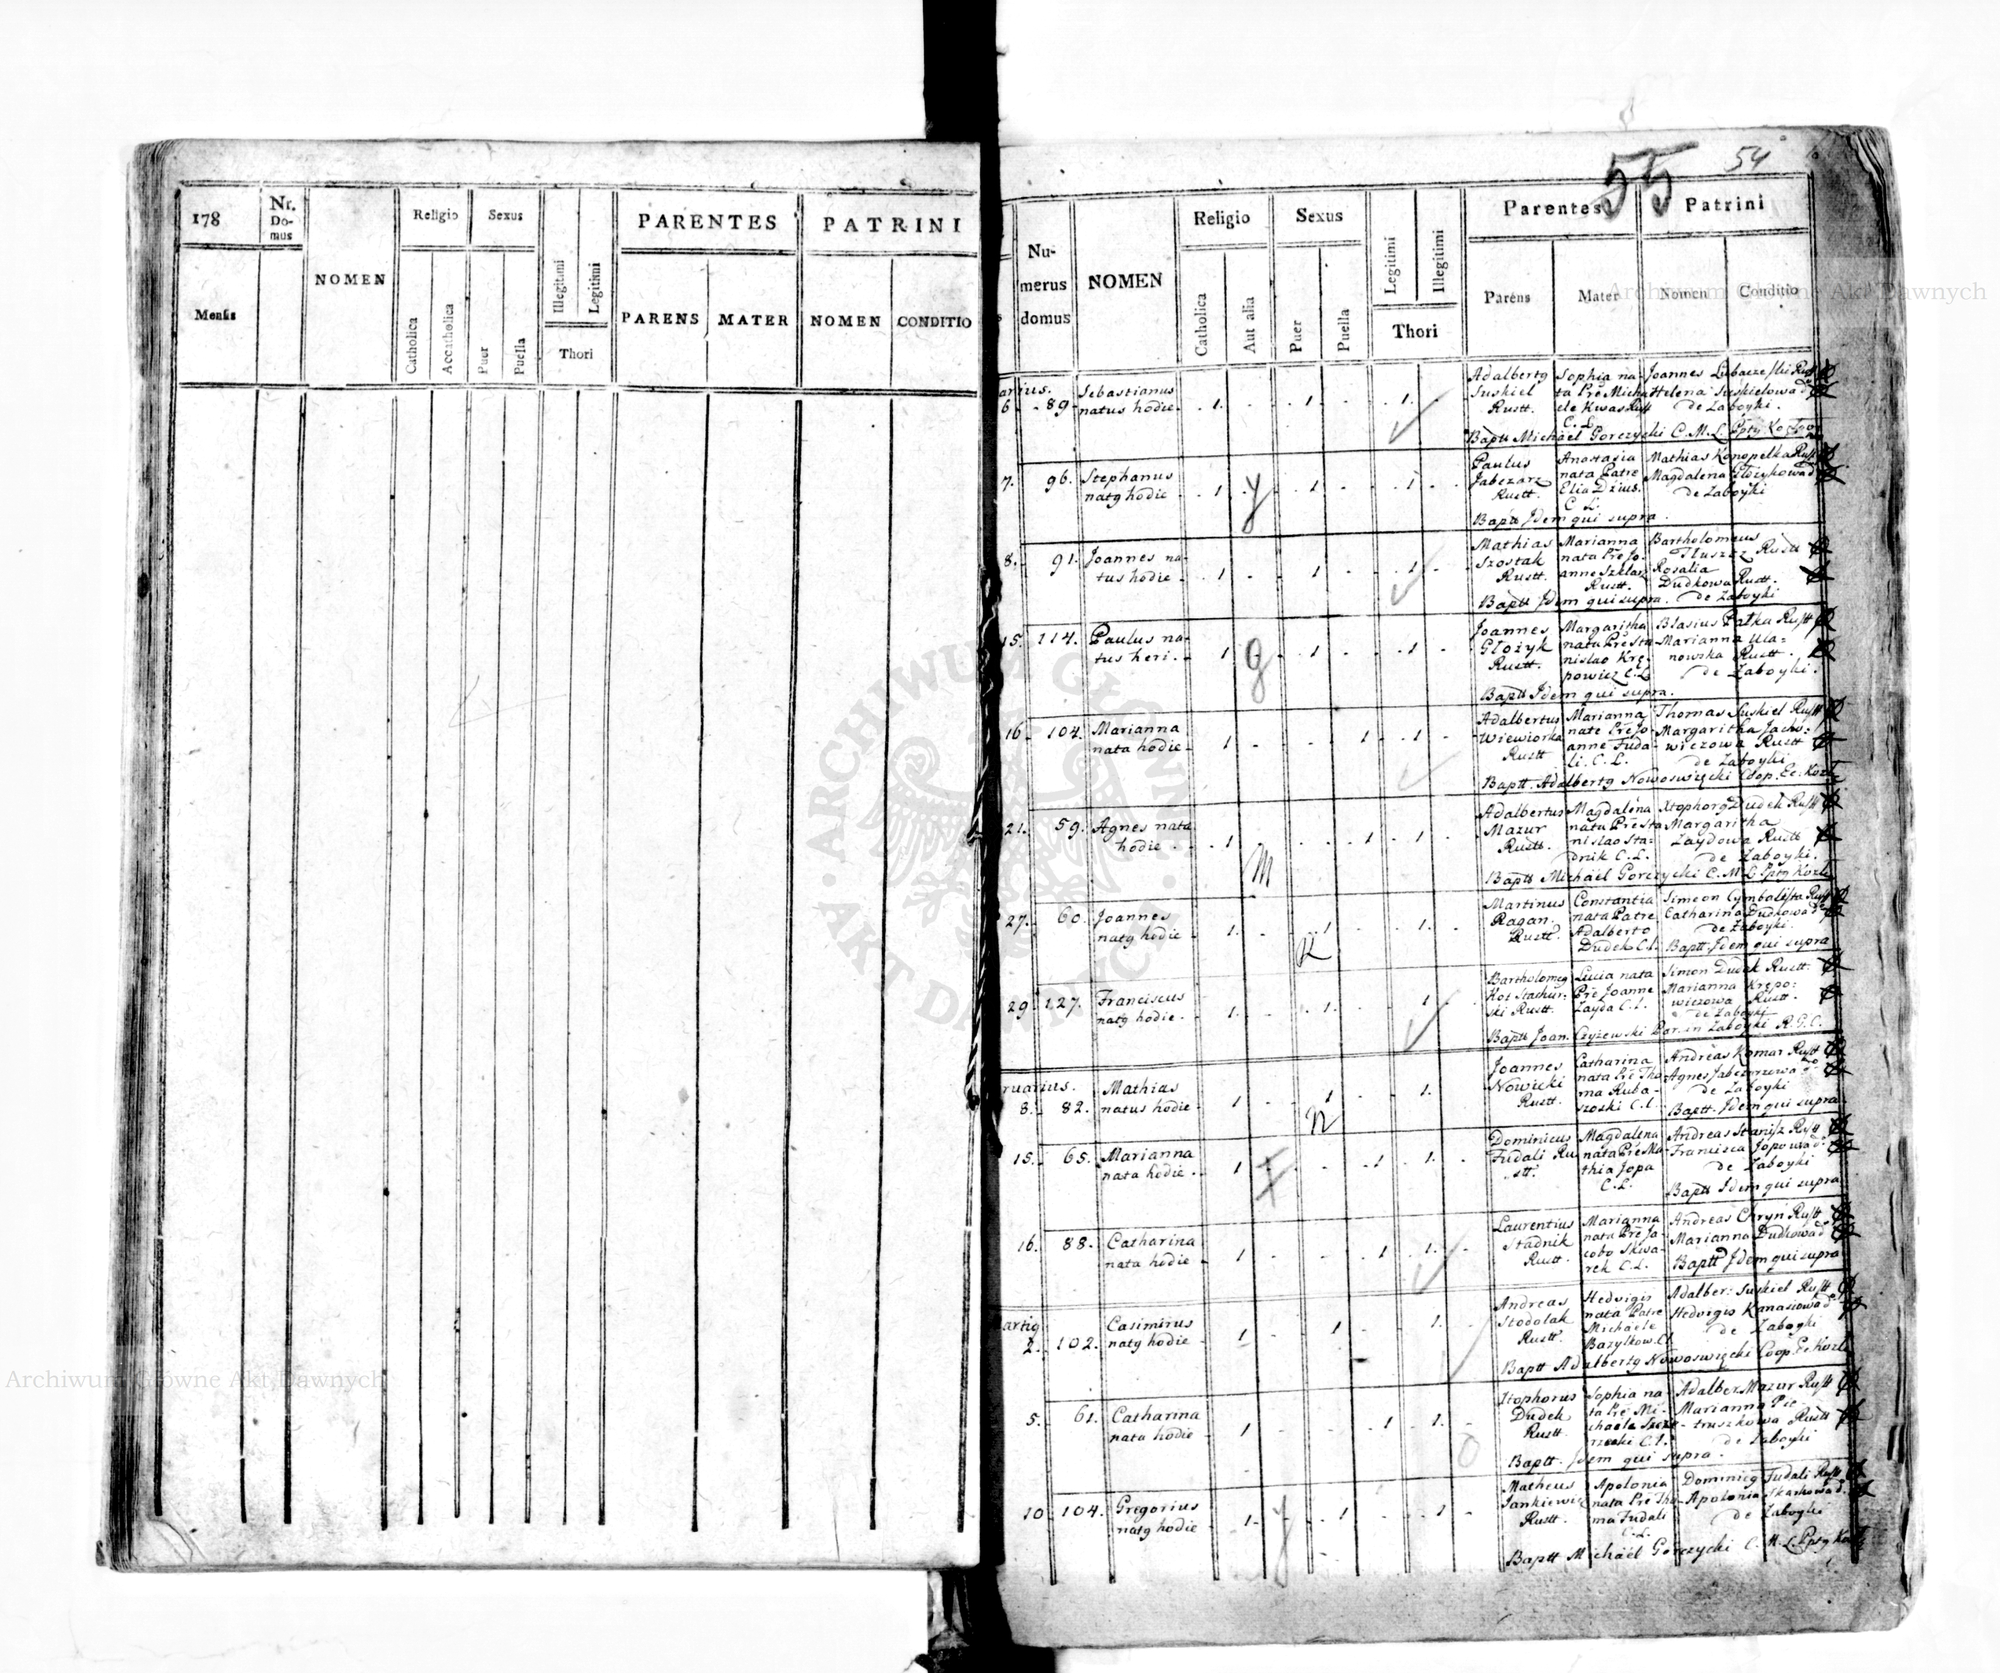 178
Nr. Do- mus
Religio
Sexus
PARENTES
PATRINI
Mensis
NOMEN
Catholica
Accatholica
Puer
Puella
Illegitimi
Legitimi
Thori
PARENS
MATER
NOMEN
CONDITIO
55
54
Nu-
merus
domus
NOMEN
Religio
Sexus
Legitimi
Illegitimi
Parentes
Patrini
Catholica
Aut alia
Puer
Puella
Thori
Parens
Mater
Nomen
Conditio
arius.
6 89 Sebastianus
natus hodie 1. 1. 1.
Adalbertg
Suskiel
Rustt.
Sophia na-
ta Pre Micha
ele Kwas Rustt
C. L.
Joannes
Helena Suskielowa
de Zaboyki.
Baptt Michael Gorczycki C. M. L.
7. 96. Stephanus
natg hodie 1. 1. 1.
Paulus
Jabczarz
Rustt.
Anastasia
nata Patre
Elia Dzius.
C. L.
Mathias Konopelka Rustt
Magdalena Głożykowa
de Zaboyki
Baptt Jdem qui supra.
8. 91. Joannes na-
tus hodie 1. 1. 1.
Mathias
Szostak
Rustt.
Marianna
nata Pre Jo-
anne Szklarz
Rustt.
Bartholomeus
Tłuszcz Rustt
Rosalia
Dudkowa Rustt.
Baptt Jdem qui supra. de Zaboyki
15. 114. Paulus na-
tus heri. 1. 1. 1.
Joannes
Głożyk
Rustt.
Margaritha
nata Pre Sta
nislao Krę-
powicz C. L.
Blasius Pałka Rustt
Marianna Ula-
nowska Rustt.
de Zaboyki.
Baptt Jdem qui supra.
16 104. Marianna
nata hodie 1. 1. 1.
Adalbertus
Wiewiorka
Rustt
Marianna
nata Pre Jo
anne Fuda-
li. C. L.
Thomas Suskiel Rustt
Margaritha Jachi-
wiczowa Rustt
de Zaboyki
Baptt. Adalbertg Nowoswięcki Coop. Ec. Kozl.
21. 59. Agnes nata
hodie. 1. 1. 1.
Adalbertus
Mazur
Rustt.
Magdalena
nata Pre Sta
nislao Sta-
dnik C. L.
Xtophorg Dudek Rustt
Margaritha
Zaydowa Rustt
de Zaboyki.
Baptt Michael Gorczycki C. M. L.
27. 60. Joannes
natg hodie 1. 1. 1.
Martinus
Ragan.
Rustt.
Constantia
nata Patre
Adalberto
Dudek C. L.
Simeon Cymbalista Rustt
Catharina Dudkowa
de Zaboyki.
Baptt. Jdem qui supra
29. 127. Franciscus
natg hodie. 1. 1. 1
Bartholomeg
Kot Stachur-
ski Rustt.
Lucia nata
Pre Joanne
Zayda C. L.
Simon Dudek Rustt.
Marianna Krępo-
wiczowa Rustt.
de Zaboyki
Baptt Joan. Czyżewski Par. in Zaboyki R. G. C.
ruarius.
8. 82. Mathias
natus hodie 1 1 1.
Joannes
Nowicki
Rustt.
Catharina
nata Pre Tho-
ma Ruba-
szoski C. L.
Andreas Komar Rustt
Agnes Jabczarzowa
de Zaboyki
Baptt. Jdem qui supra
15. 65. Marianna
nata hodie. 1 1 1.
Dominicus
Fudali Ru-
stt.
Magdalena
nata Pre Ma-
thia Jopa
C. L.
Andreas Stanisz Rustt
Francisca Jopowa
de Zaboyki
Baptt Jdem qui supra
16. 88. Catharina
nata hodie 1 1 1.
Laurentius
Stadnik
Rustt.
Marianna
nata Pre Ja-
cobo Skwa-
rek C. L.
Andreas Chryn Rustt
Marianna Dudkowa
Baptt Jdem qui supra
artig
2. 102. Casimirus
natg hodie 1 1 1.
Andreas
Stodolak
Rustt.
Hedvigis
nata Patre
Michaele
Bazylkow. C. L.
Adalber: Suskiel Rustt
Hedvigis Kanasiowa
de Zaboyki
Baptt Adalbertg Nowoswięcki Coop. Ec. Kozl.
5. 61. Catharina
nata hodie 1 1 1.
Xtophorus
Dudek
Rustt.
Sophia na
ta Pre Mi-
chaele
C. L.
Adalber Mazur Rustt
Marianna Pie-
truszkowa Rustt
de Zaboyki
Baptt. Jdem qui supra.
10 104. Gregorius
natg hodie 1. 1. 1.
Matheus
Jankiewicz
Rustt.
Apolonia
nata Pre Tho-
ma Fudali
C. L.
Dominicg Fudali Rustt
Apolonia Skarkowa
de Zaboyki
Baptt Michael Gorczycki C. M. L.
Archiwum Główne Akt Dawnych
Archiwum Główne Akt Dawnych
ARCHIWUM GŁÓWNE AKT DAWNYCH